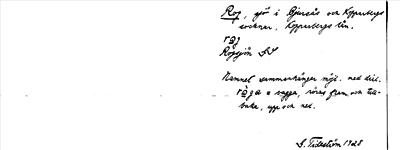 Rog, sjö i Bjursås och Kopparbergs
socknar, Kopparbergs län.
Rogsjön
Namnet sammanhänger möjl. med dial.
= vagga, röra fram och till-
baka, upp och ned.
G. Tideström 1928